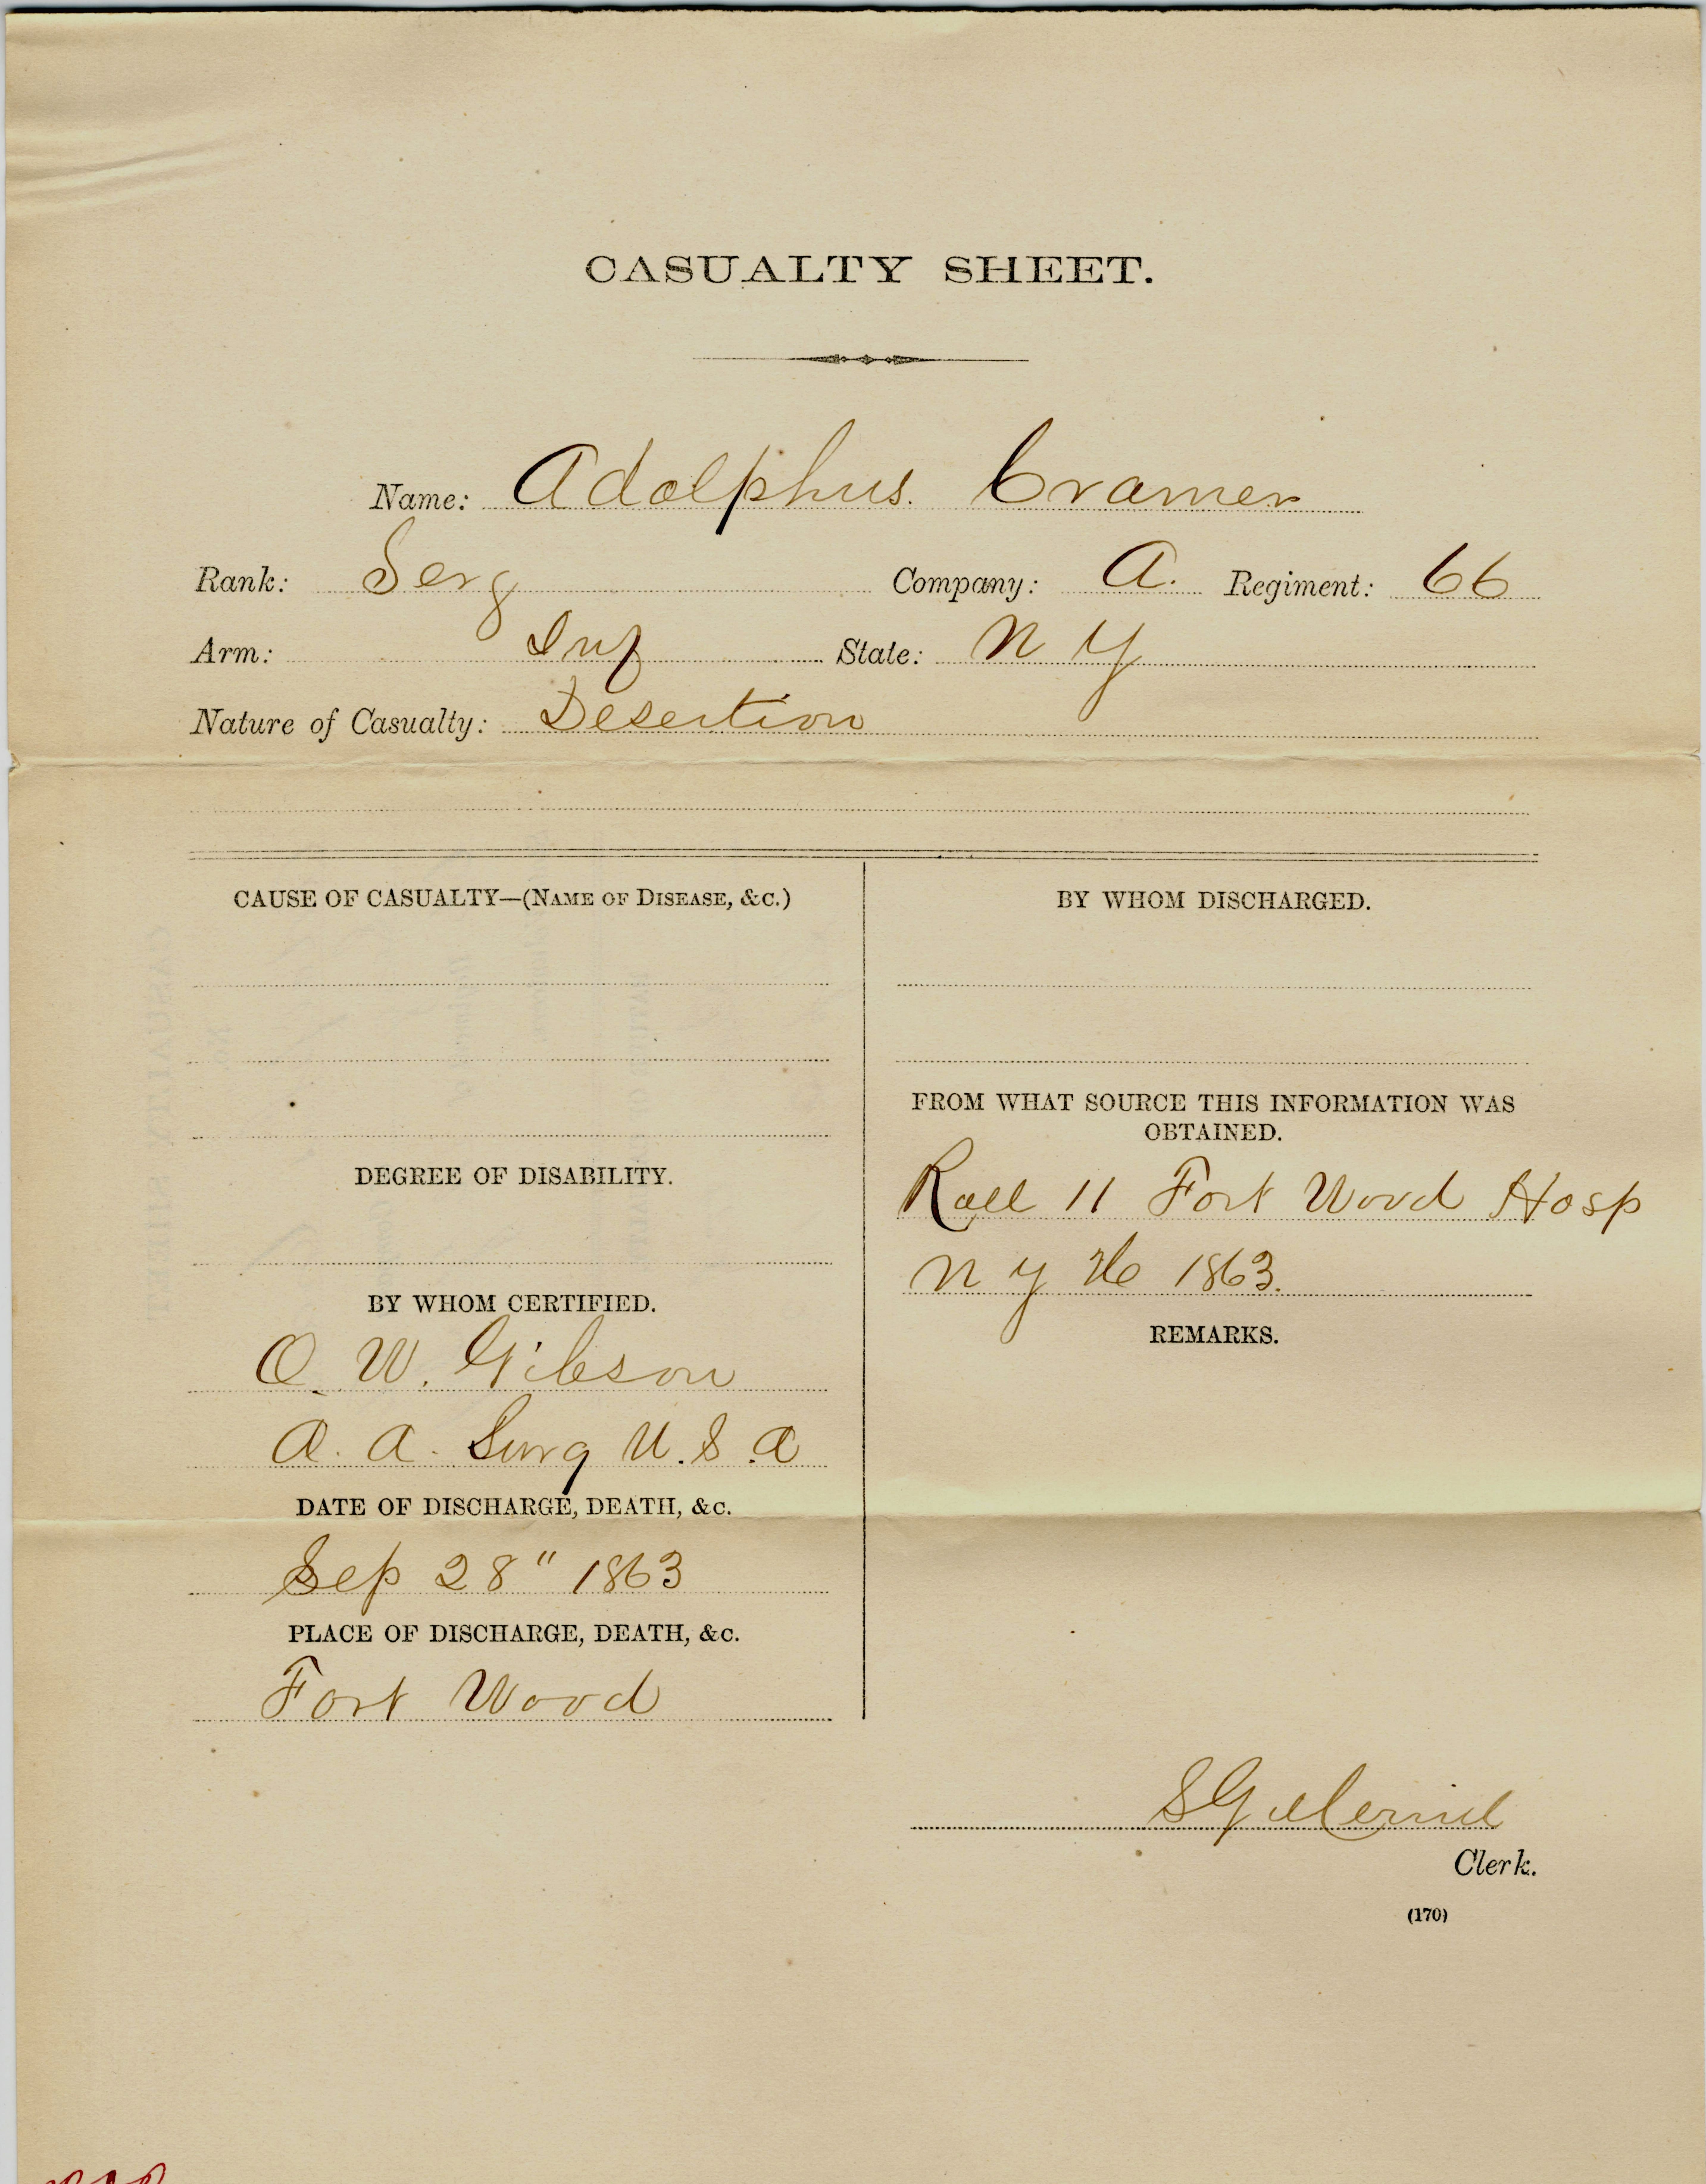 CASUALTY SHEET.
Name: Adolphus. Cramer
Rank: Serg Company: A. Regiment: 66
Arm: Inf State: N Y
Nature of Casualty: Desertion
CAUSE OF CASUALTY—(NAME OF DISEASE, &C.)
DEGREE OF DISABILITY.
BY WHOM CERTIFIED.
O. W. Gibson
A. A. Surg U.S.A
DATE OF DISCHARGE, DEATH, &C.
Sep 28" 1863
PLACE OF DISCHARGE, DEATH, &C.
Fort Wood
BY WHOM DISCHARGED.
FROM WHAT SOURCE THIS INFORMATION WAS
OBTAINED.
Roll 11 Fort Wood Hosp
N Y 1863.
REMARKS.
Clerk.
(170)